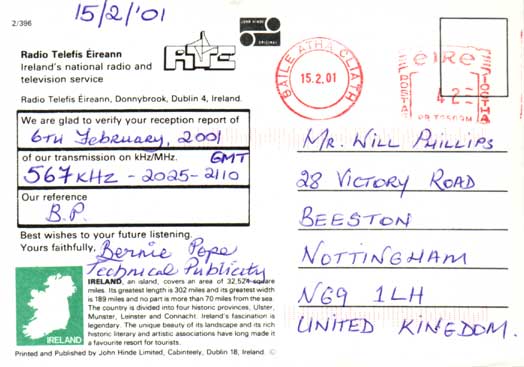 15/2/'01
2/396
JOHN HINDE
ORIGINAL
Radio Telefís Éireann
Ireland's national radio and
television service
Radio Telefís Éireann, Donnybrook, Dublin 4, Ireland.
We are glad to verify your reception report of
6TH February, 2001
of our transmission on kHz/MHz. GMT
567KHZ - 2025-2110
Our reference
B.P.
Best wishes to your future listening.
Yours faithfully, Bernie Pope
Technical Publicity
IRELAND, an island, covers an area of 32,524 square
miles. Its greatest length is 302 miles and its greatest width
is 189 miles and no part is more than 70 miles from the sea.
The country is divided into four historic provinces, Ulster,
Munster, Leinster and Connacht. Ireland's fascination is
legendary. The unique beauty of its landscape and its rich
historic literary and artistic associations have long made it
a favourite resort for tourists.
IRELAND
Printed and Published by John Hinde Limited, Cabinteely, Dublin 18, Ireland. ©
BAILE ÁTHA CLIATH
15.2.01
éire
POSTAS
ÍOCTHA
42
MR. WILL PHILLIPS
28 VICTORY ROAD
BEESTON
NOTTINGHAM
NG9 1LH
UNITED KINGDOM.